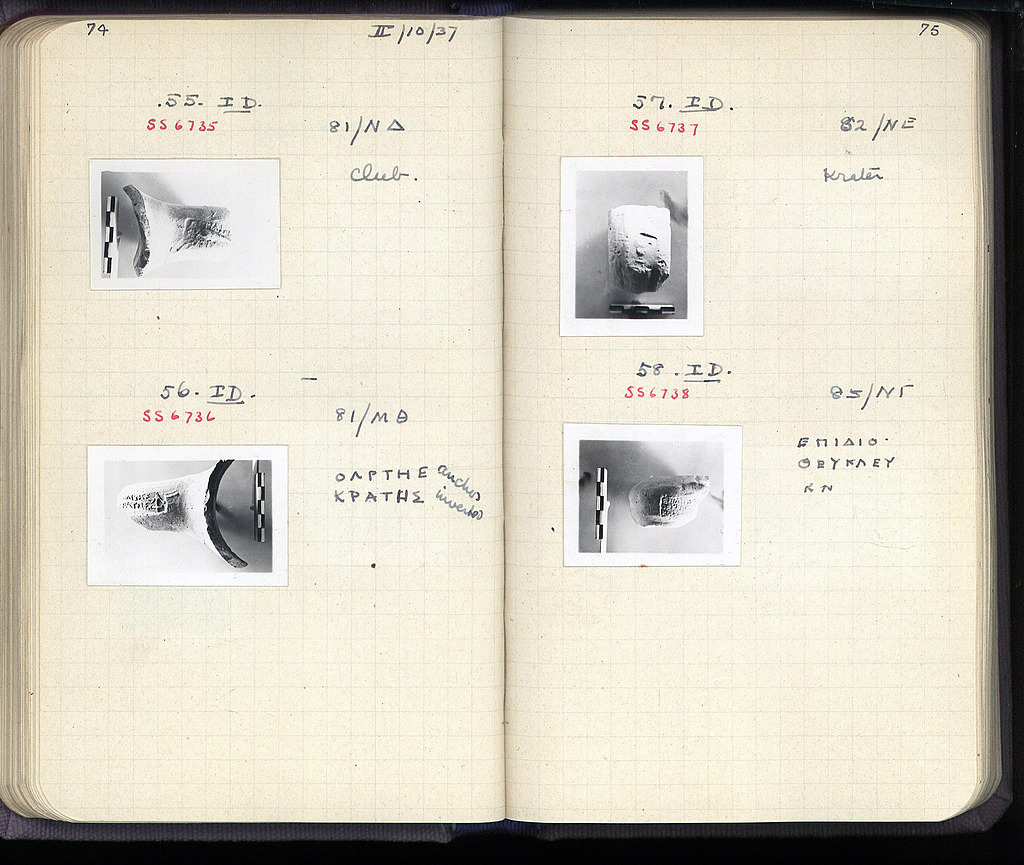 74
II/10/37
.55. ID.
SS 6735
81/ΝΔ
Club.
56. ID.
SS 6736
81/ΜΘ
ΟΛΡΤΗΕ anchos
ΚΡΑΤΗΣ invertos
75
57. ID.
SS 6737
82/ΝΕ
Krater
58. ID.
SS 6738
85/ΝΓ
ΕΠΙΔΙΟ·
ΘΕΥΚΛΕΥ
ΚΝ